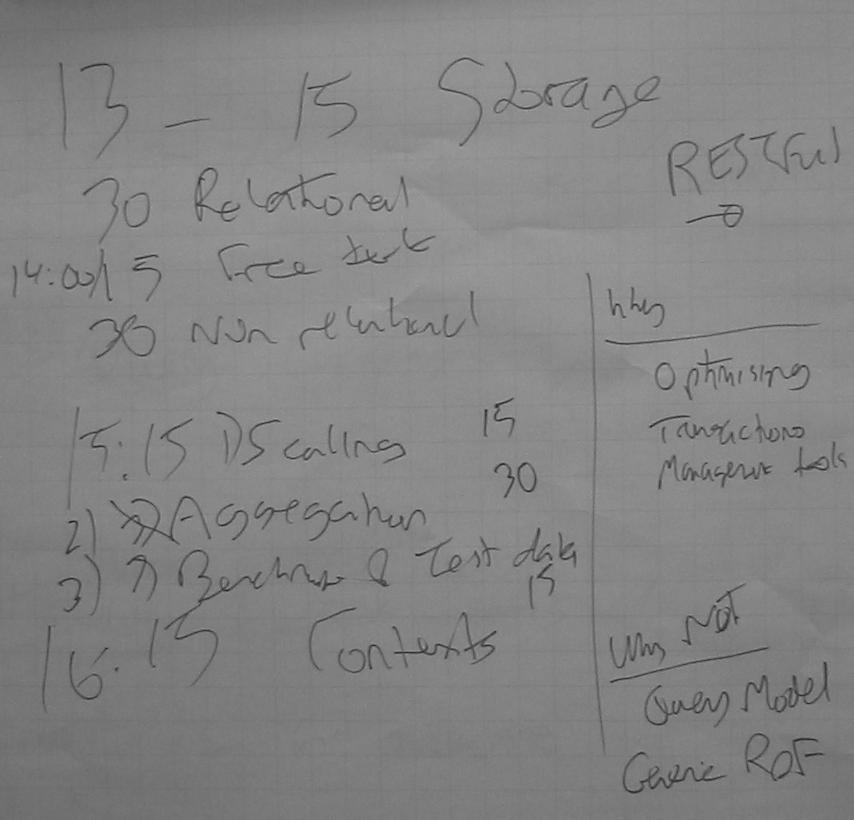 13 - 15 Storage
30 Relational
14:00/15 Free text
30 Non relational
15:15 1) Scaling 15
2) Aggregation 30
3) Benchmark & Test data 15
16.15 Contexts
RESTful
Why
Optimising
Transactions
Management tools
Why NOT
Query Model
Generic RDF